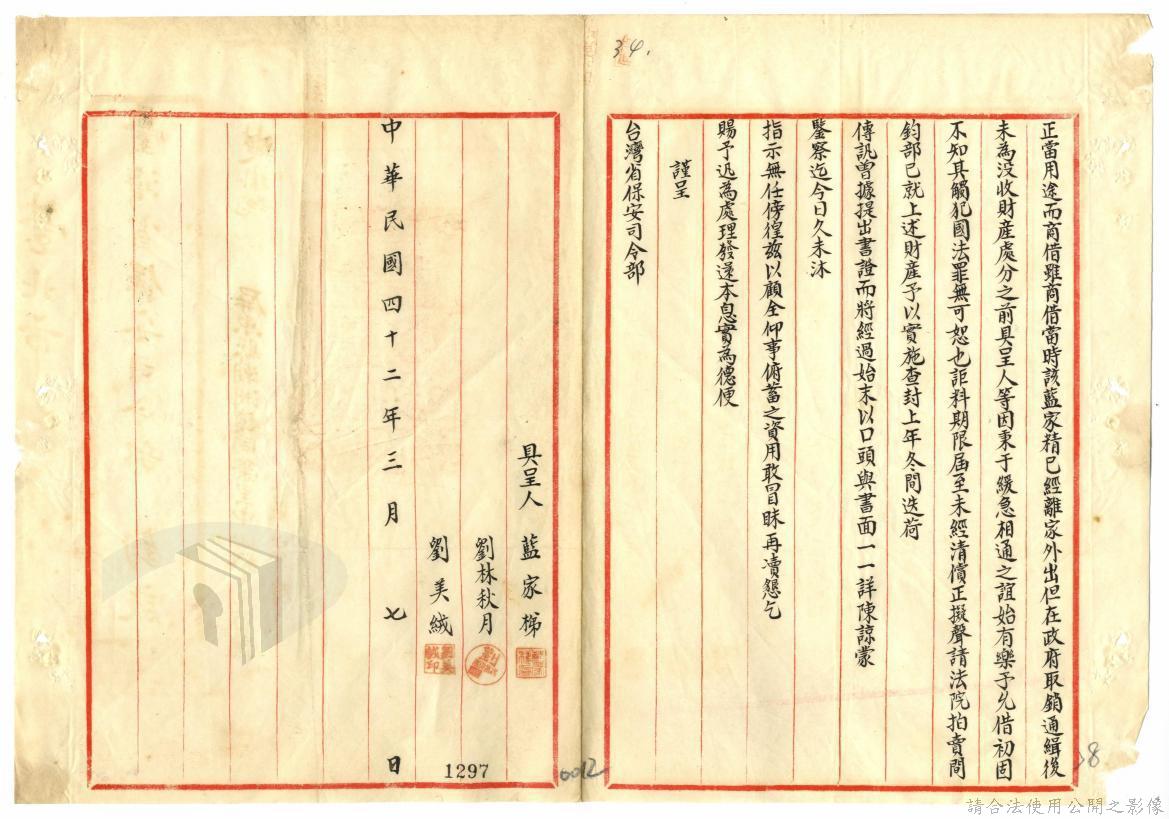 34.
正當用途而商借雖商借當時該藍家精已經離家外出但在政府取銷通緝後
未為沒收財產處分之前具呈人等因秉于緩急相通之誼始有樂予允借初固
不知其觸犯國法罪無可恕也詎料期限屆至未經清償正擬聲請法院拍賣間
鈞部已就上述財產予以實施查封上年冬間迭荷
傳訊曾據提出書證而將經過始末以口頭與書面一一詳陳諒蒙
鑒察迄今日久未沐
指示無任傍徨茲以顧全仰事俯蓄之資用敢冒昧再瀆懇乞
賜予迅為處理發還本息實為德便
謹呈
台灣省保安司令部
具呈人 藍家梯
劉林秋月
劉美絨
中華民國四十二年三月七日
1297
0012
8
請合法使用公開之影像